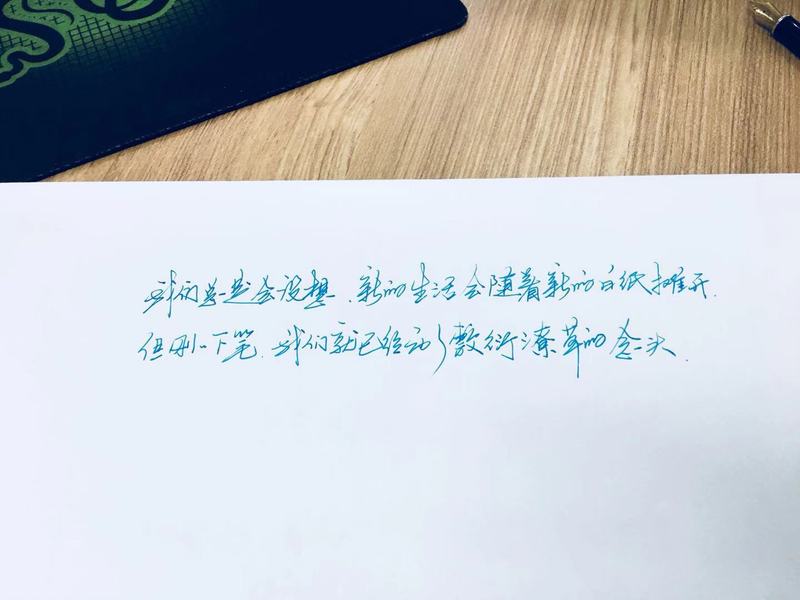 我们总是会设想,新的生活会随着新的白纸摊开.
但刚一下笔,我们就已经动了敷衍潦草的念头.